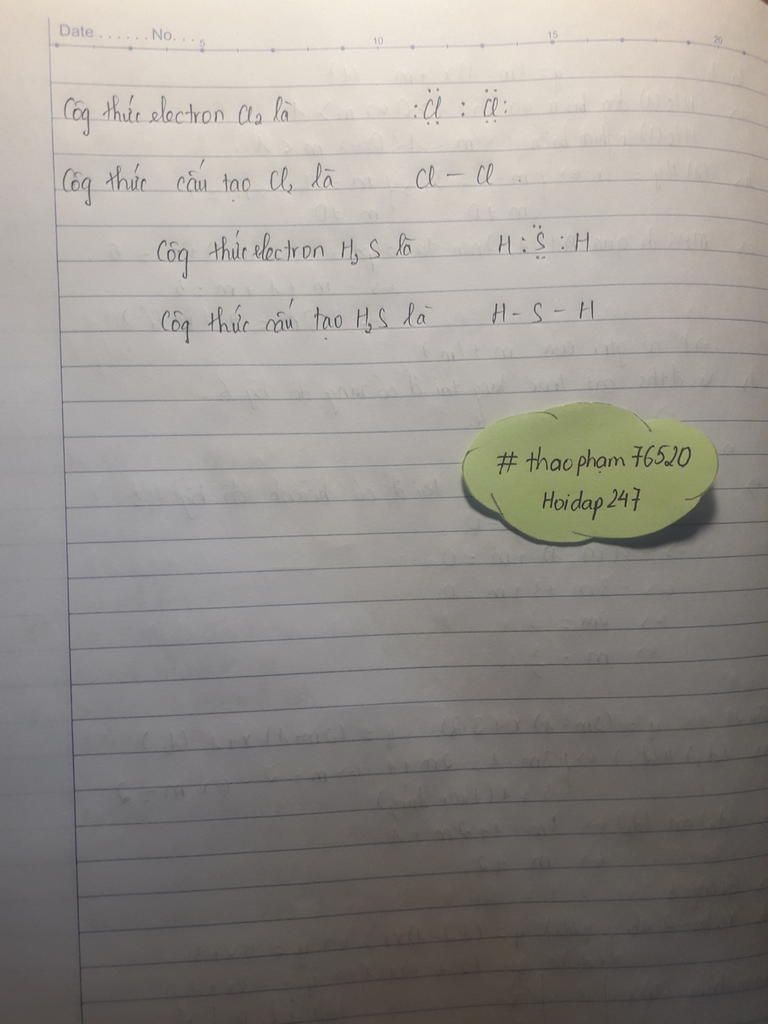 Date ...... No. ...
5 10 15 20
Côg thức electron Cl₂ là :C̤̈l : C̤̈l:
Côg thức cấu tạo Cl₂ là Cl – Cl .
Côg thức electron H₂S là H : S̤̈ : H
Côg thức cấu tạo H₂S là H – S – H
# thaophạm 76520
Hoidap 247